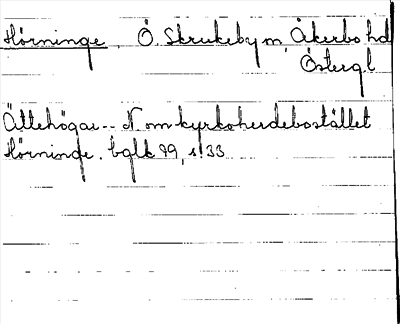 Hörninge, Ö. Skrukeby sn, Åkerbo hd
Östergl
Ättehögar -- N om kyrkoherdebostället
Hörninge. bglk 99, s. 33